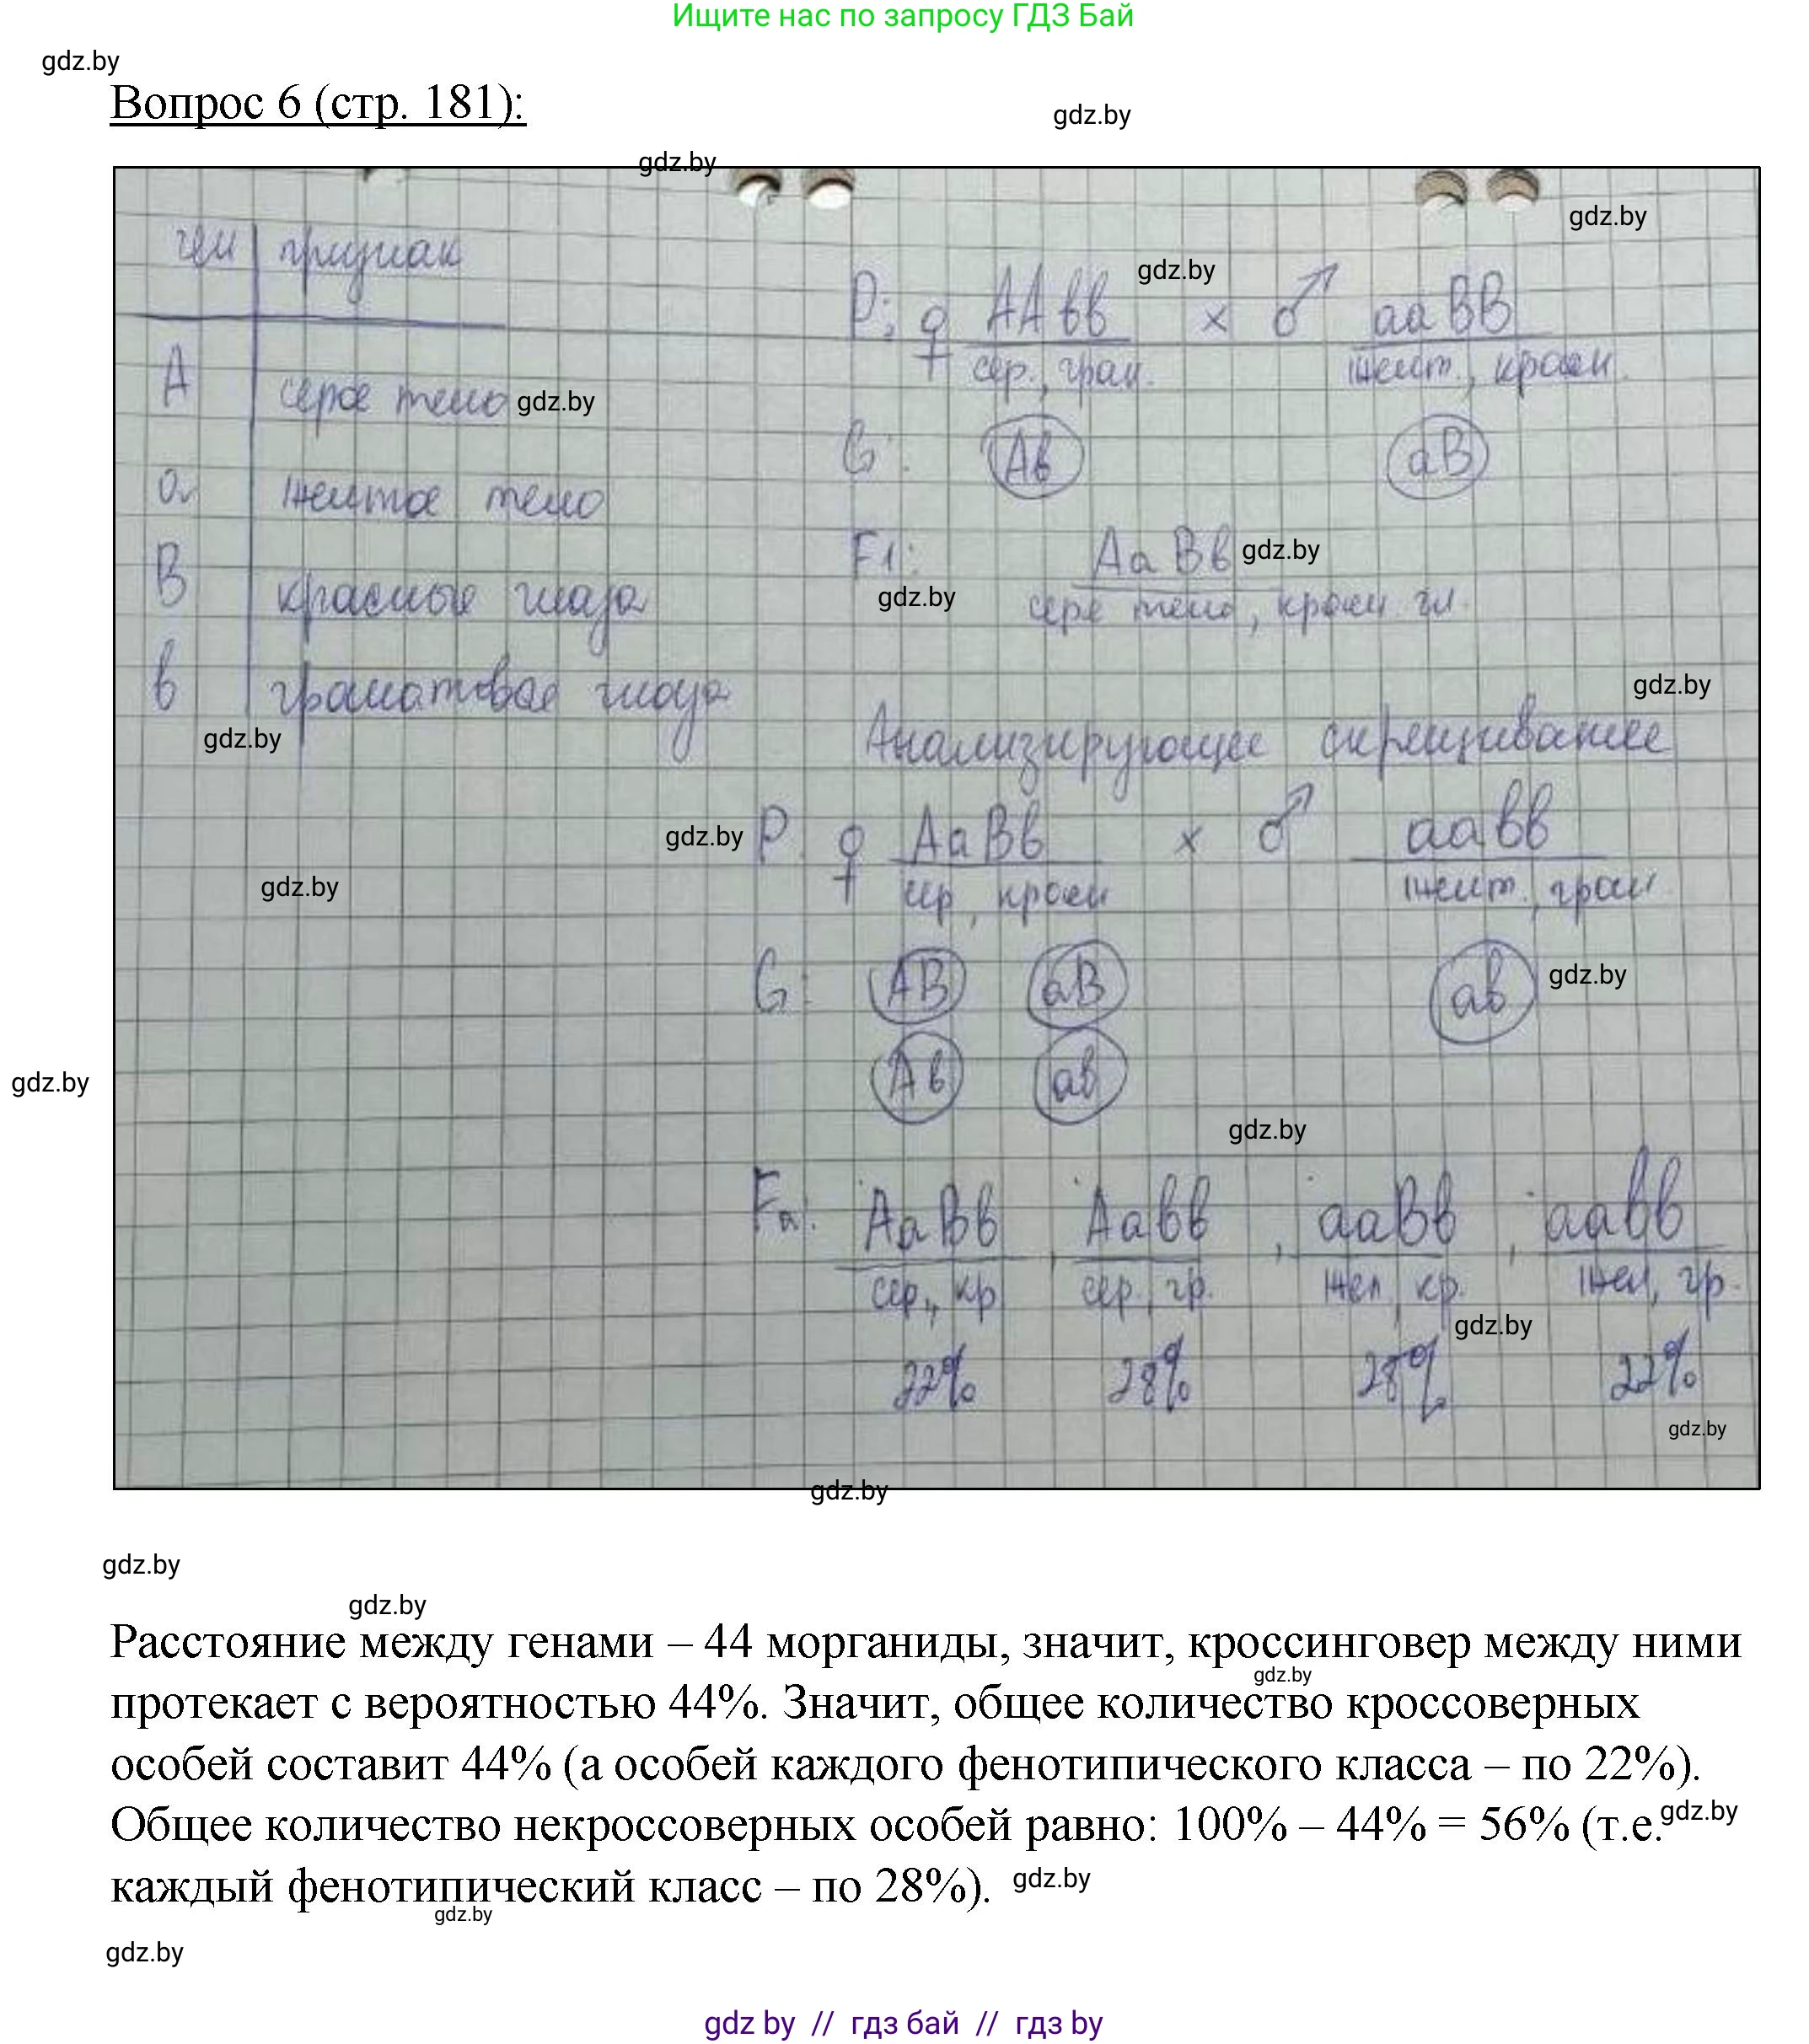 Ищите нас по запросу ГДЗ Бай
gdz.by
Вопрос 6 (стр. 181):
gdz.by
gdz.by
gdz.by
ген признак
P: ♀ ААвв × ♂ ааВВ
gdz.by
сер., гран. желт., красн.
А серое тело gdz.by
G: Ав аВ
а желтое тело
F1: АаВв gdz.by
В красные глаза
gdz.by
серое тело, красн. гл.
в гранатовые глаза
gdz.by
gdz.by
Анализирующее скрещивание
gdz.by P: ♀ АаВв × ♂ аавв
gdz.by
сер, красн желт., гран
G: АВ аВ ав gdz.by
Ав ав
gdz.by
gdz.by
Fa: АаВв, Аавв, ааВв, аавв
сер., кр сер., гр. жел, кр. жел, гр.
gdz.by
22% 28% 28% 22%
gdz.by
gdz.by
gdz.by
gdz.by
Расстояние между генами – 44 морганиды, значит, кроссинговер между ними
gdz.by
протекает с вероятностью 44%. Значит, общее количество кроссоверных
особей составит 44% (а особей каждого фенотипического класса – по 22%).
Общее количество некроссоверных особей равно: 100% – 44% = 56% (т.е. gdz.by
каждый фенотипический класс – по 28%). gdz.by
gdz.by
gdz.by
gdz by // гдз бай // гдз by